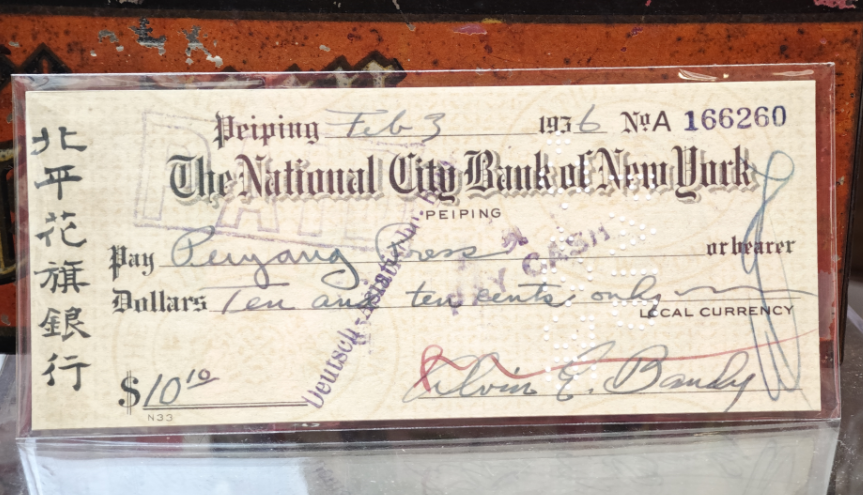 北平花旗銀行
Peiping Feb 3 1936 No A 166260
The National City Bank of New York
PEIPING
Pay Peiyang Press or bearer
Dollars Ten and ten cents only
LOCAL CURRENCY
$10 10
Alvin E. Bandy
N33
PAID
PAY CASH
Deutsch-Asiatische